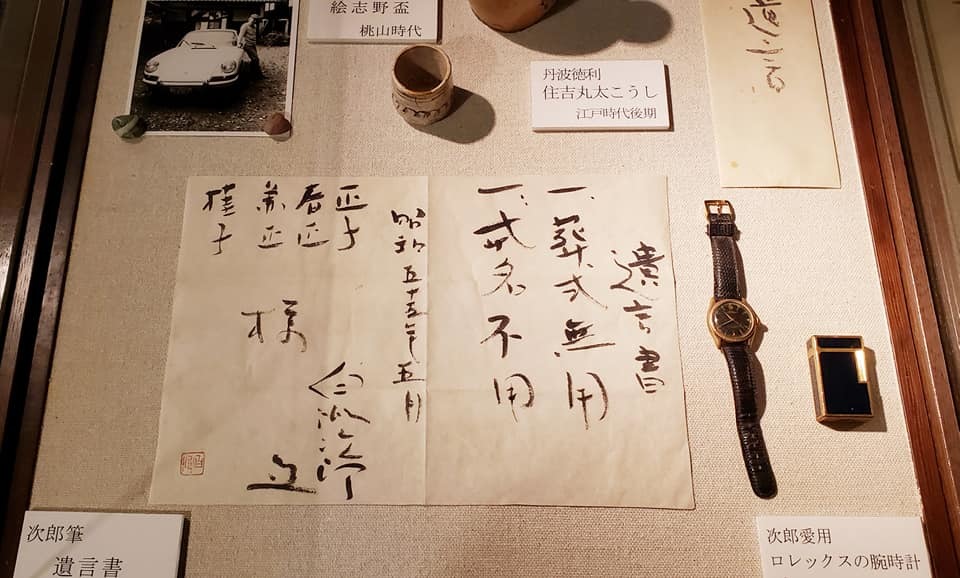 絵志野盃
桃山時代
丹波徳利
住吉丸太こうし
江戸時代後期
遺言書
遺言書
一、葬式無用
一、戒名不用
昭和五十五年五月
正子
春正
兼正
桂子
様
白洲次郎
次郎筆
遺言書
次郎愛用
ロレックスの腕時計